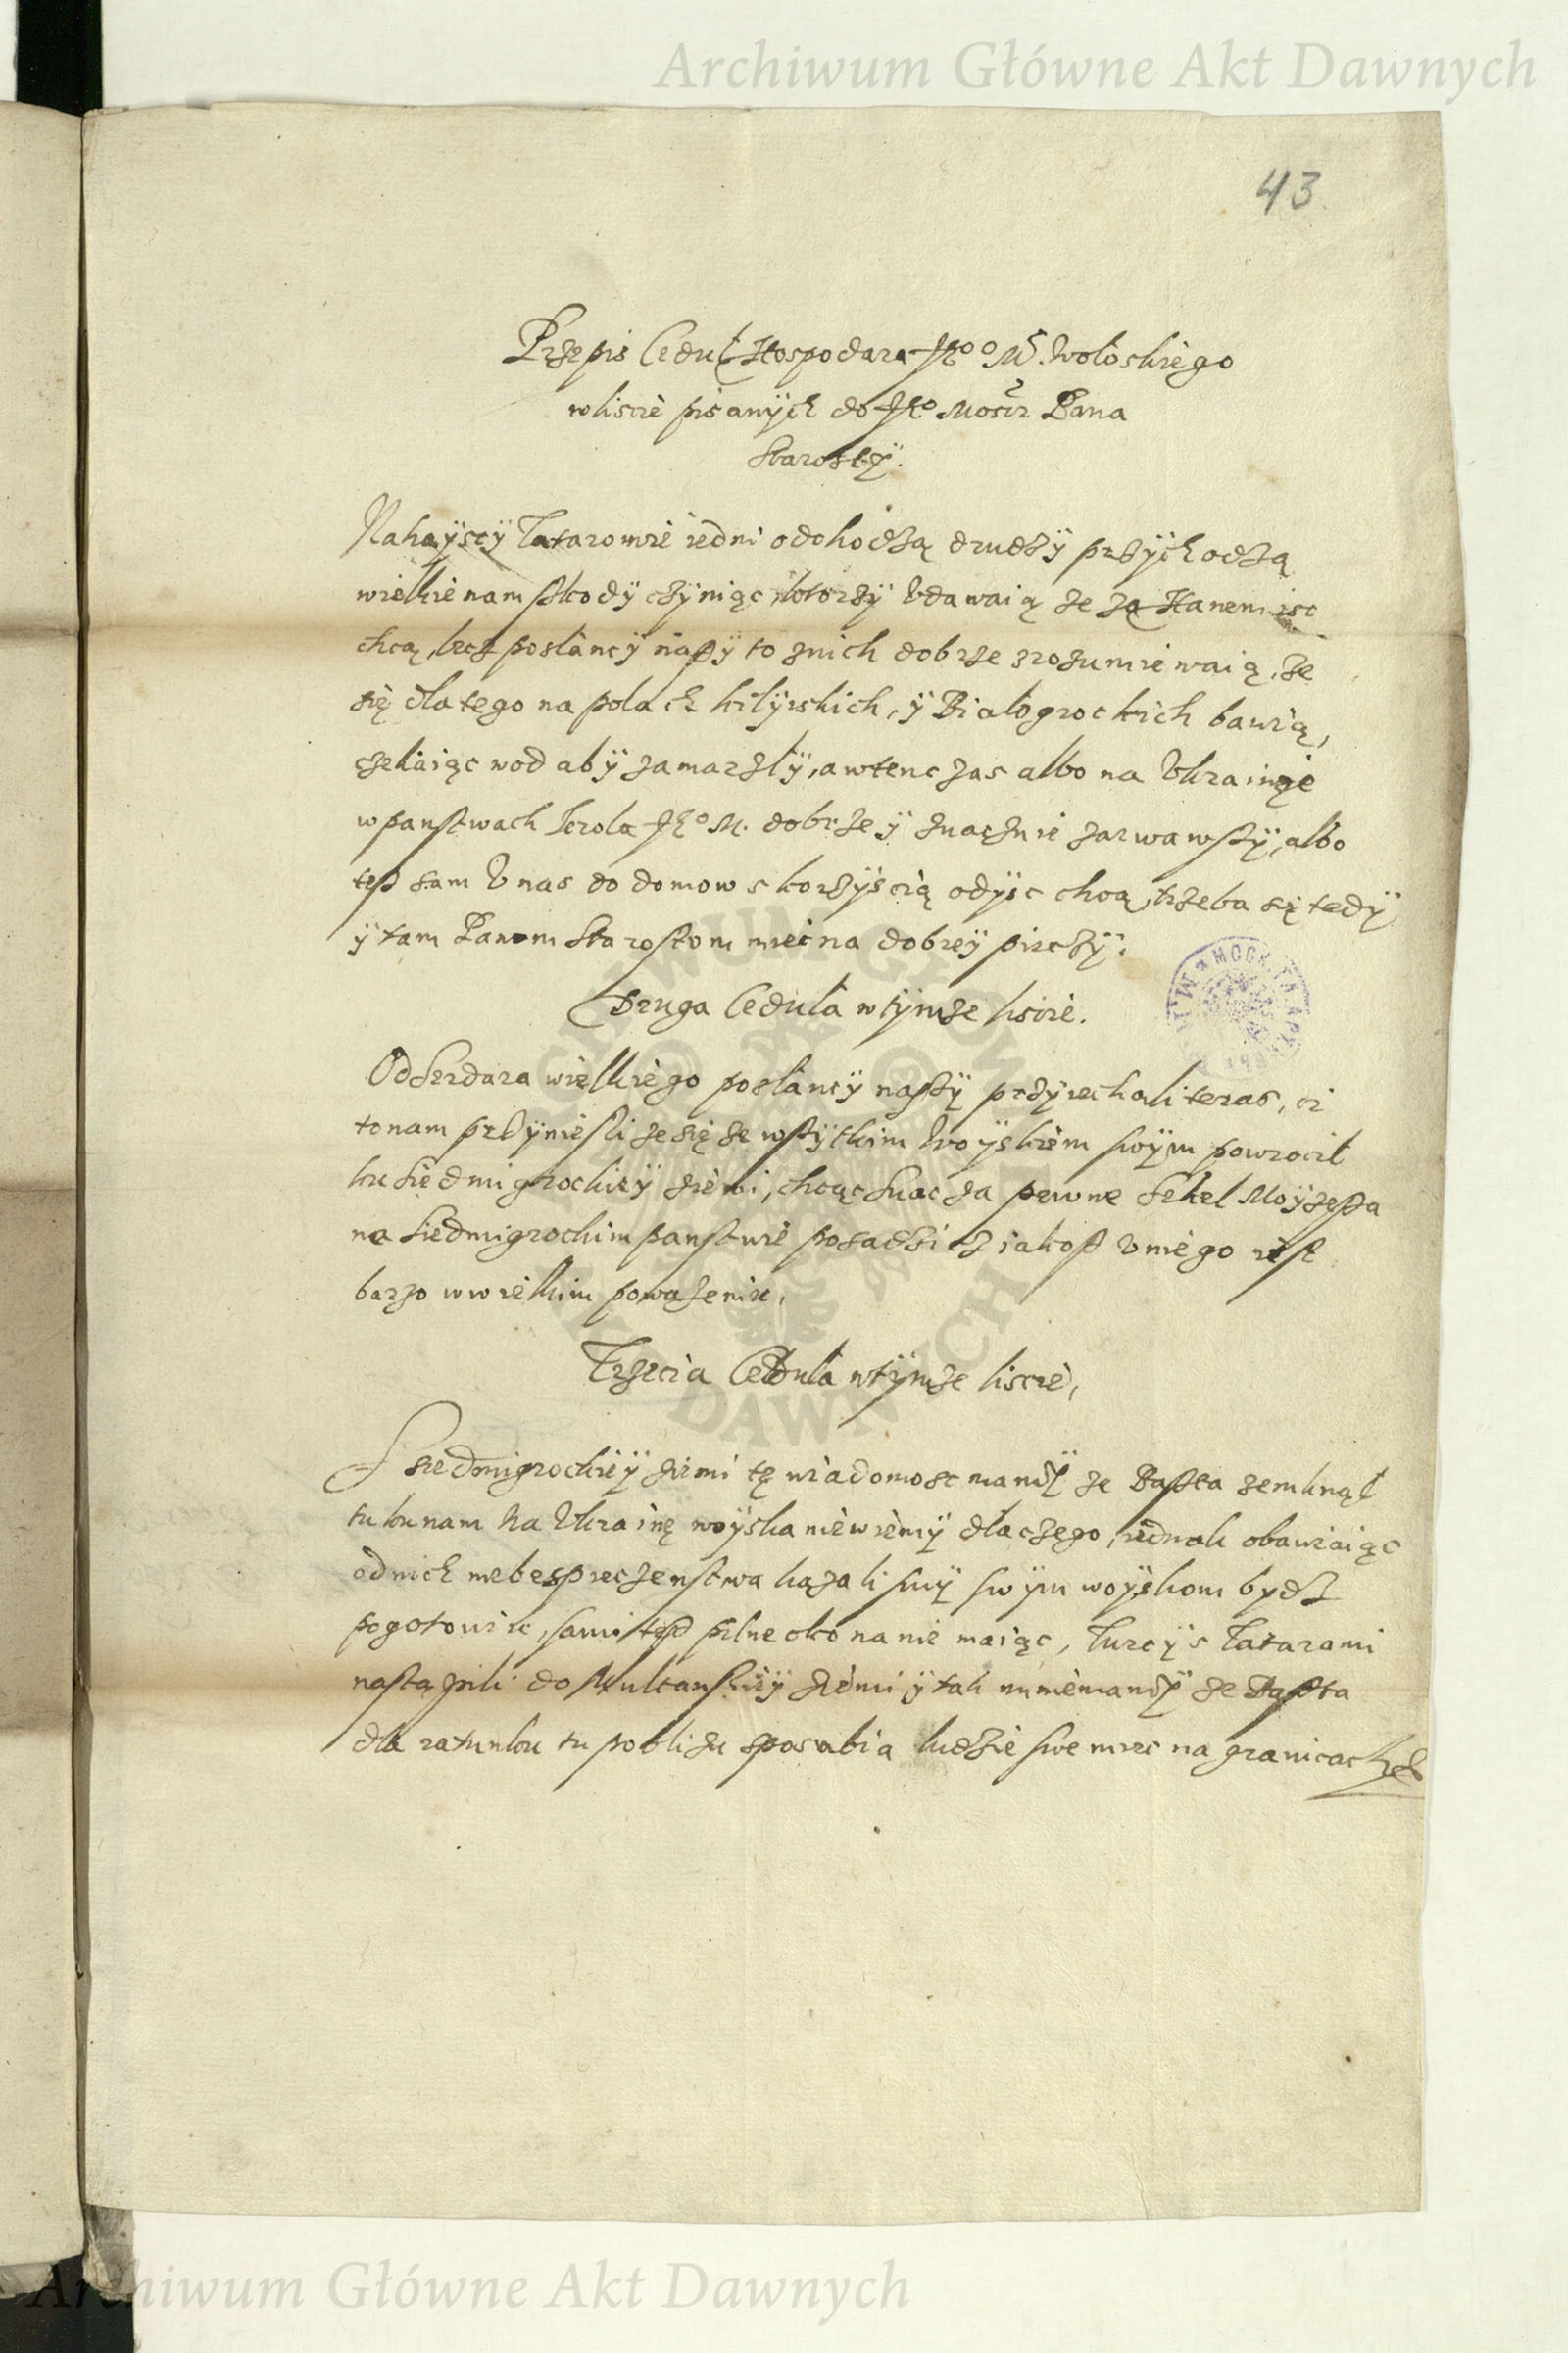 Archiwum Główne Akt Dawnych
43
Przepis Cedul Hospodara Jgo M. Wołoskiego
w liscie pisanych do Jgo Mosci Pana
Starosty.
Nahayscy Tatarowie iedni odchodzą drudzy przychodzą
wielkie nam szkody czyniąc, ktorzy Udawaią ze zą Hanem isc
chcą, lecz posłancy naszy to znich dobrze zrozumiewaią, ze
się dla tego na polach kiliyskich, y Białogrockich bawią,
czekaiąc wod aby zamarzły, a wtenczas albo na Ukrainie
w panstwach krola Jgo M. dobrze y znacznie zarwawszy, albo
tesz sam U nas do domow s korzyscią odysc chcą, trzeba się tedy
y tam Panom Starostom miec na dobrey pieczy.
Druga Cedula w tymze liscie.
Od Serdara wielkiego posłancy naszy przyiechali teras, ci
to nam przyniesli ze się ze wszytkim Woyskiem swym powrocił
ku Siedmigrockiey ziemi, chcąc snac za pewne Sekel Moyzesza
na Siedmigrockim panstwie posadzic z iakosz U niego iest
barzo w wielkim powazeniu.
Trzecia Cedula w tymze liscie,
S siedmigrockiey ziemi tę wiadomosc mamy ze Baszta zemknął
tu ku nam na Ukrainę woyska niewiemy dlaczego, iednak obawiaiąc
od nich niebespieczenstwa kazalismy swym woyskom bydz
pogotowiu, sami tesz pilne oko na nie maiąc, Turcy s Tatarami
nastąpili do Multanskiey ziemi y tak mniemamy ze Baszta
dla ratunku tu poblizu sposabia ludzie swe miec na granicach etc
Archiwum Główne Akt Dawnych